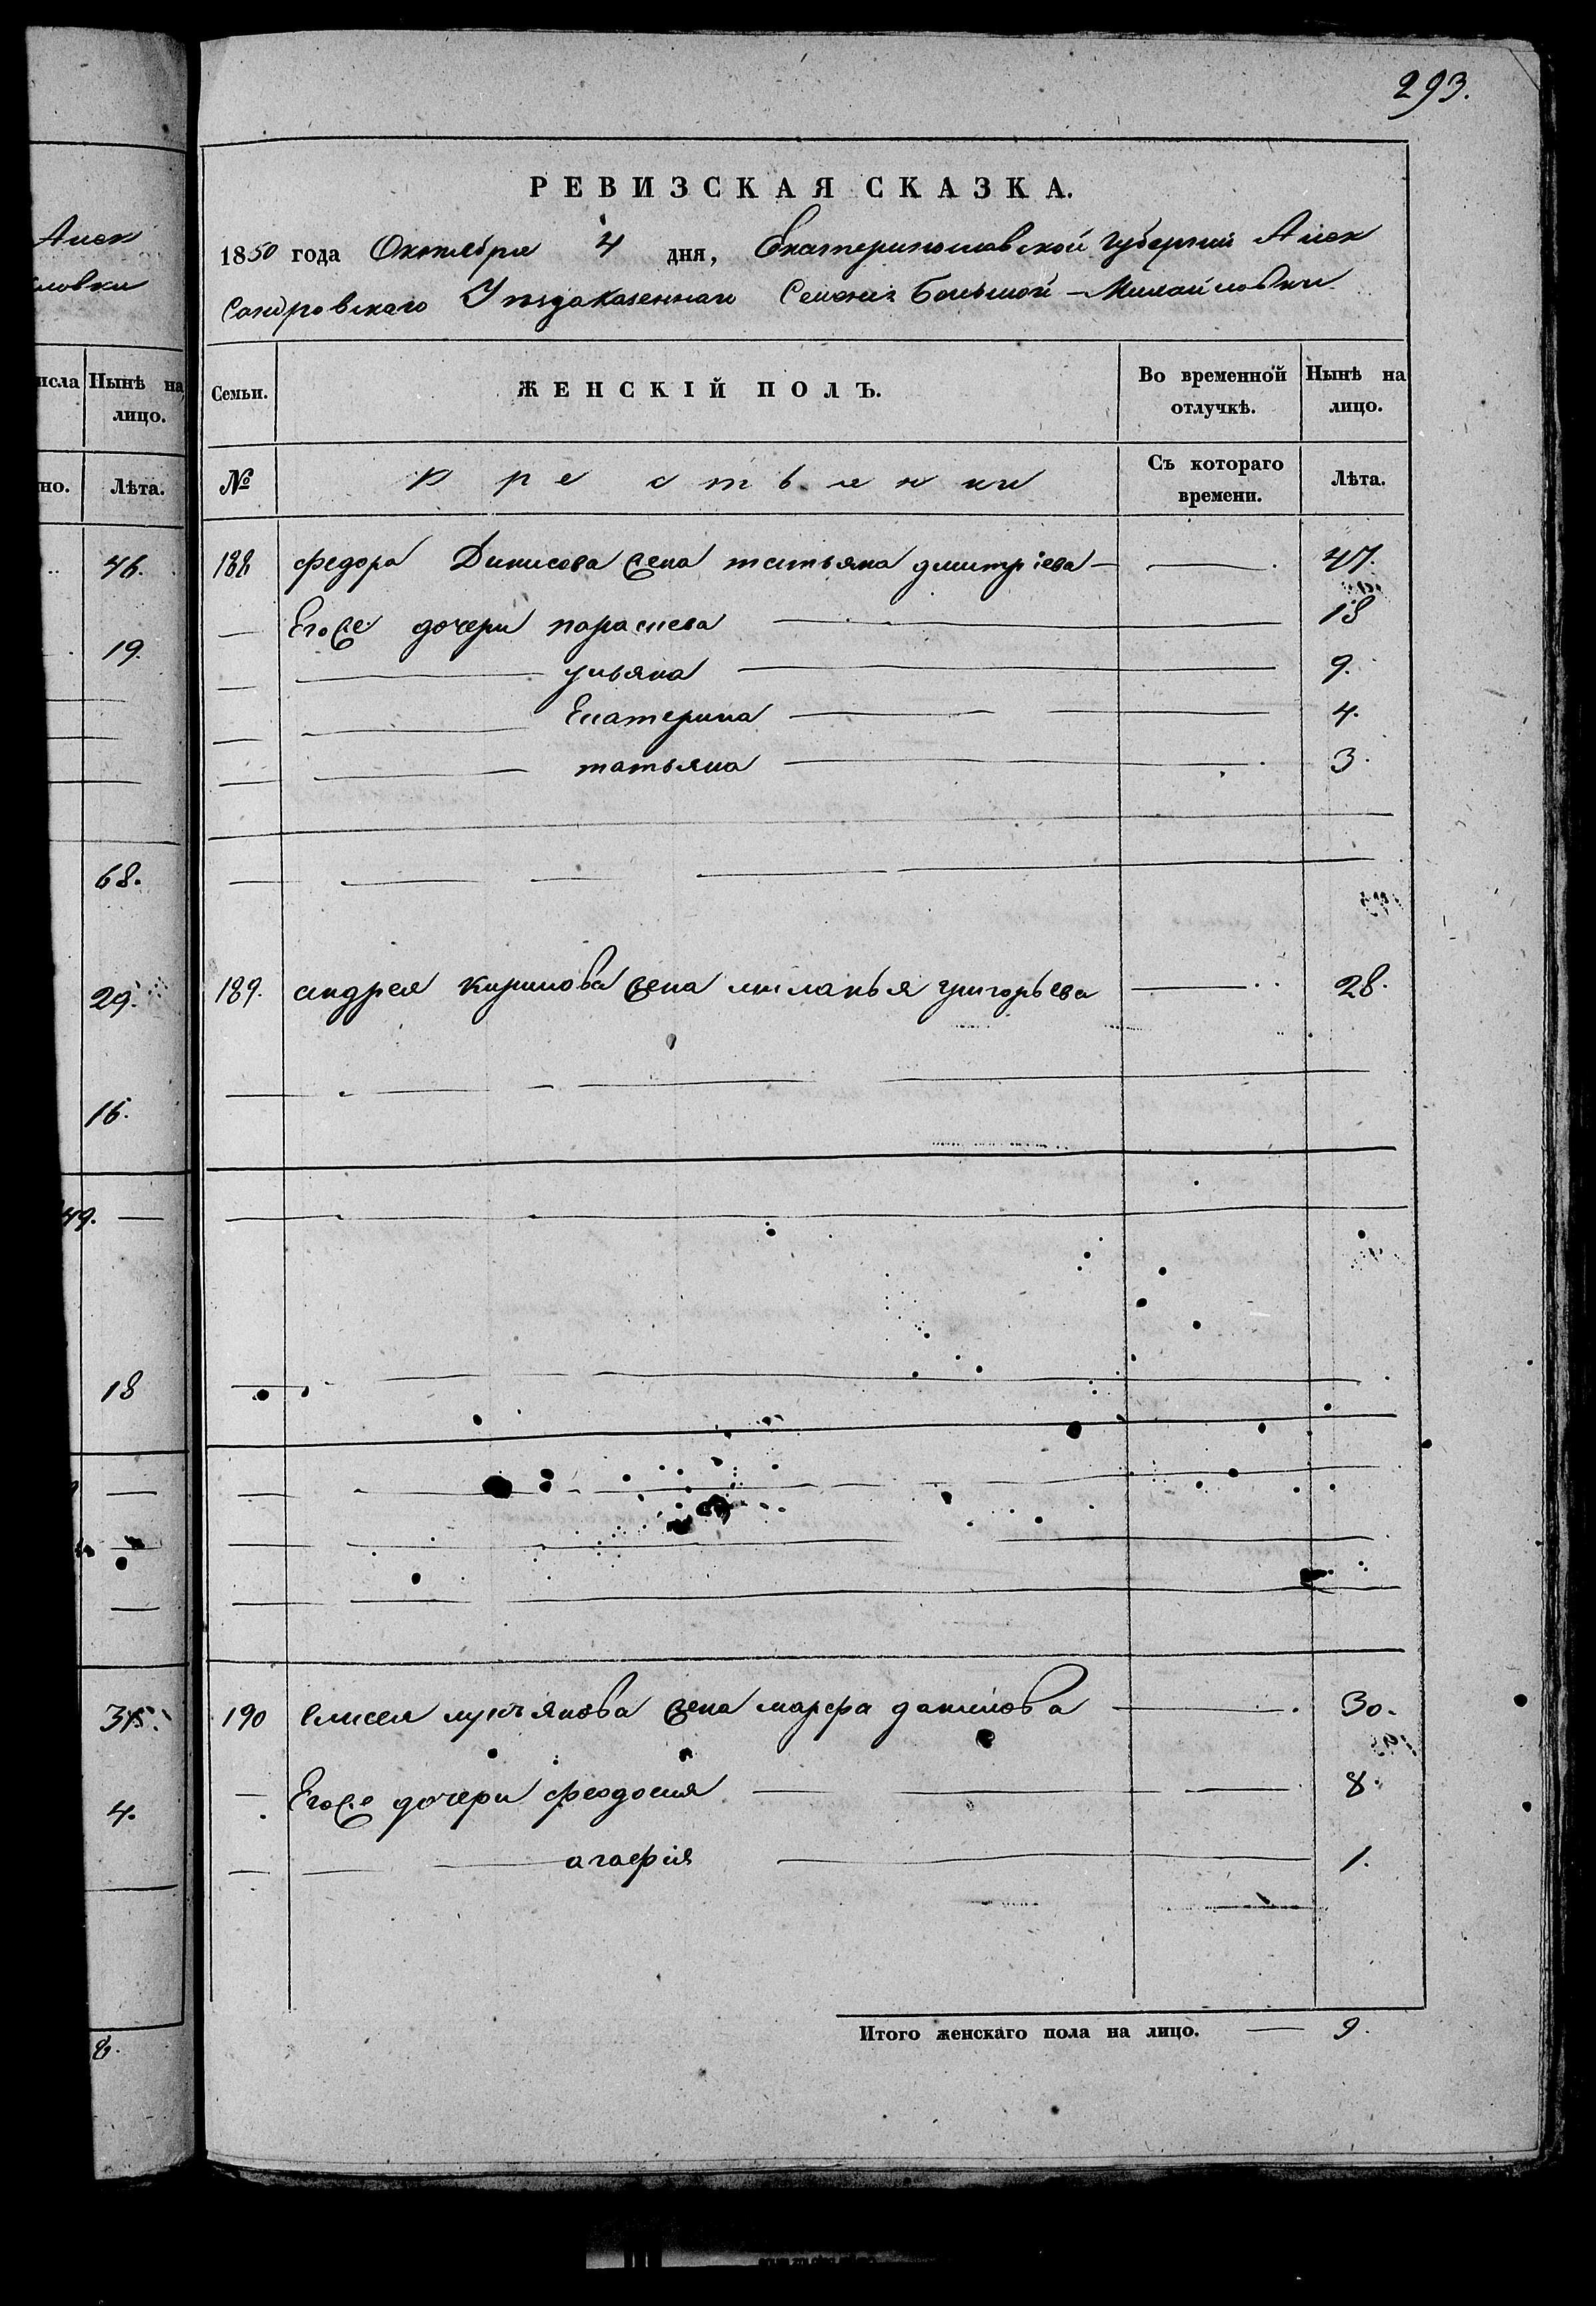 293.
Алек
ловки
исла Нынѣ на
лицо.
но. Лѣта.
46.
19.
68.
29.
16.
49.
18
4.
8.
РЕВИЗСКАЯ СКАЗКА.
1850 года Октября 4 дня, Екатеринославской губернии Алек
сандровскаго Уѣзда казеннаго Селения Большой-Михайловки
Семьи. ЖЕНСКІЙ ПОЛЪ. Во временной Нынѣ на
отлучкѣ. лицо.
№ Крестьянки Съ котораго Лѣта.
времени.
188 федора Динисова жена татьяна дмитріева 47.
Его же дочери параскева 18
ульяна 9.
Екатерина 4.
татьяна 3.
189. андрея Кирилова жена миланья григорьева 28.
190 елисея лукьянова жена марфа данилова 30.
Его же дочери феодосия 8.
агафія 1.
Итого женскаго пола на лицо. 9.